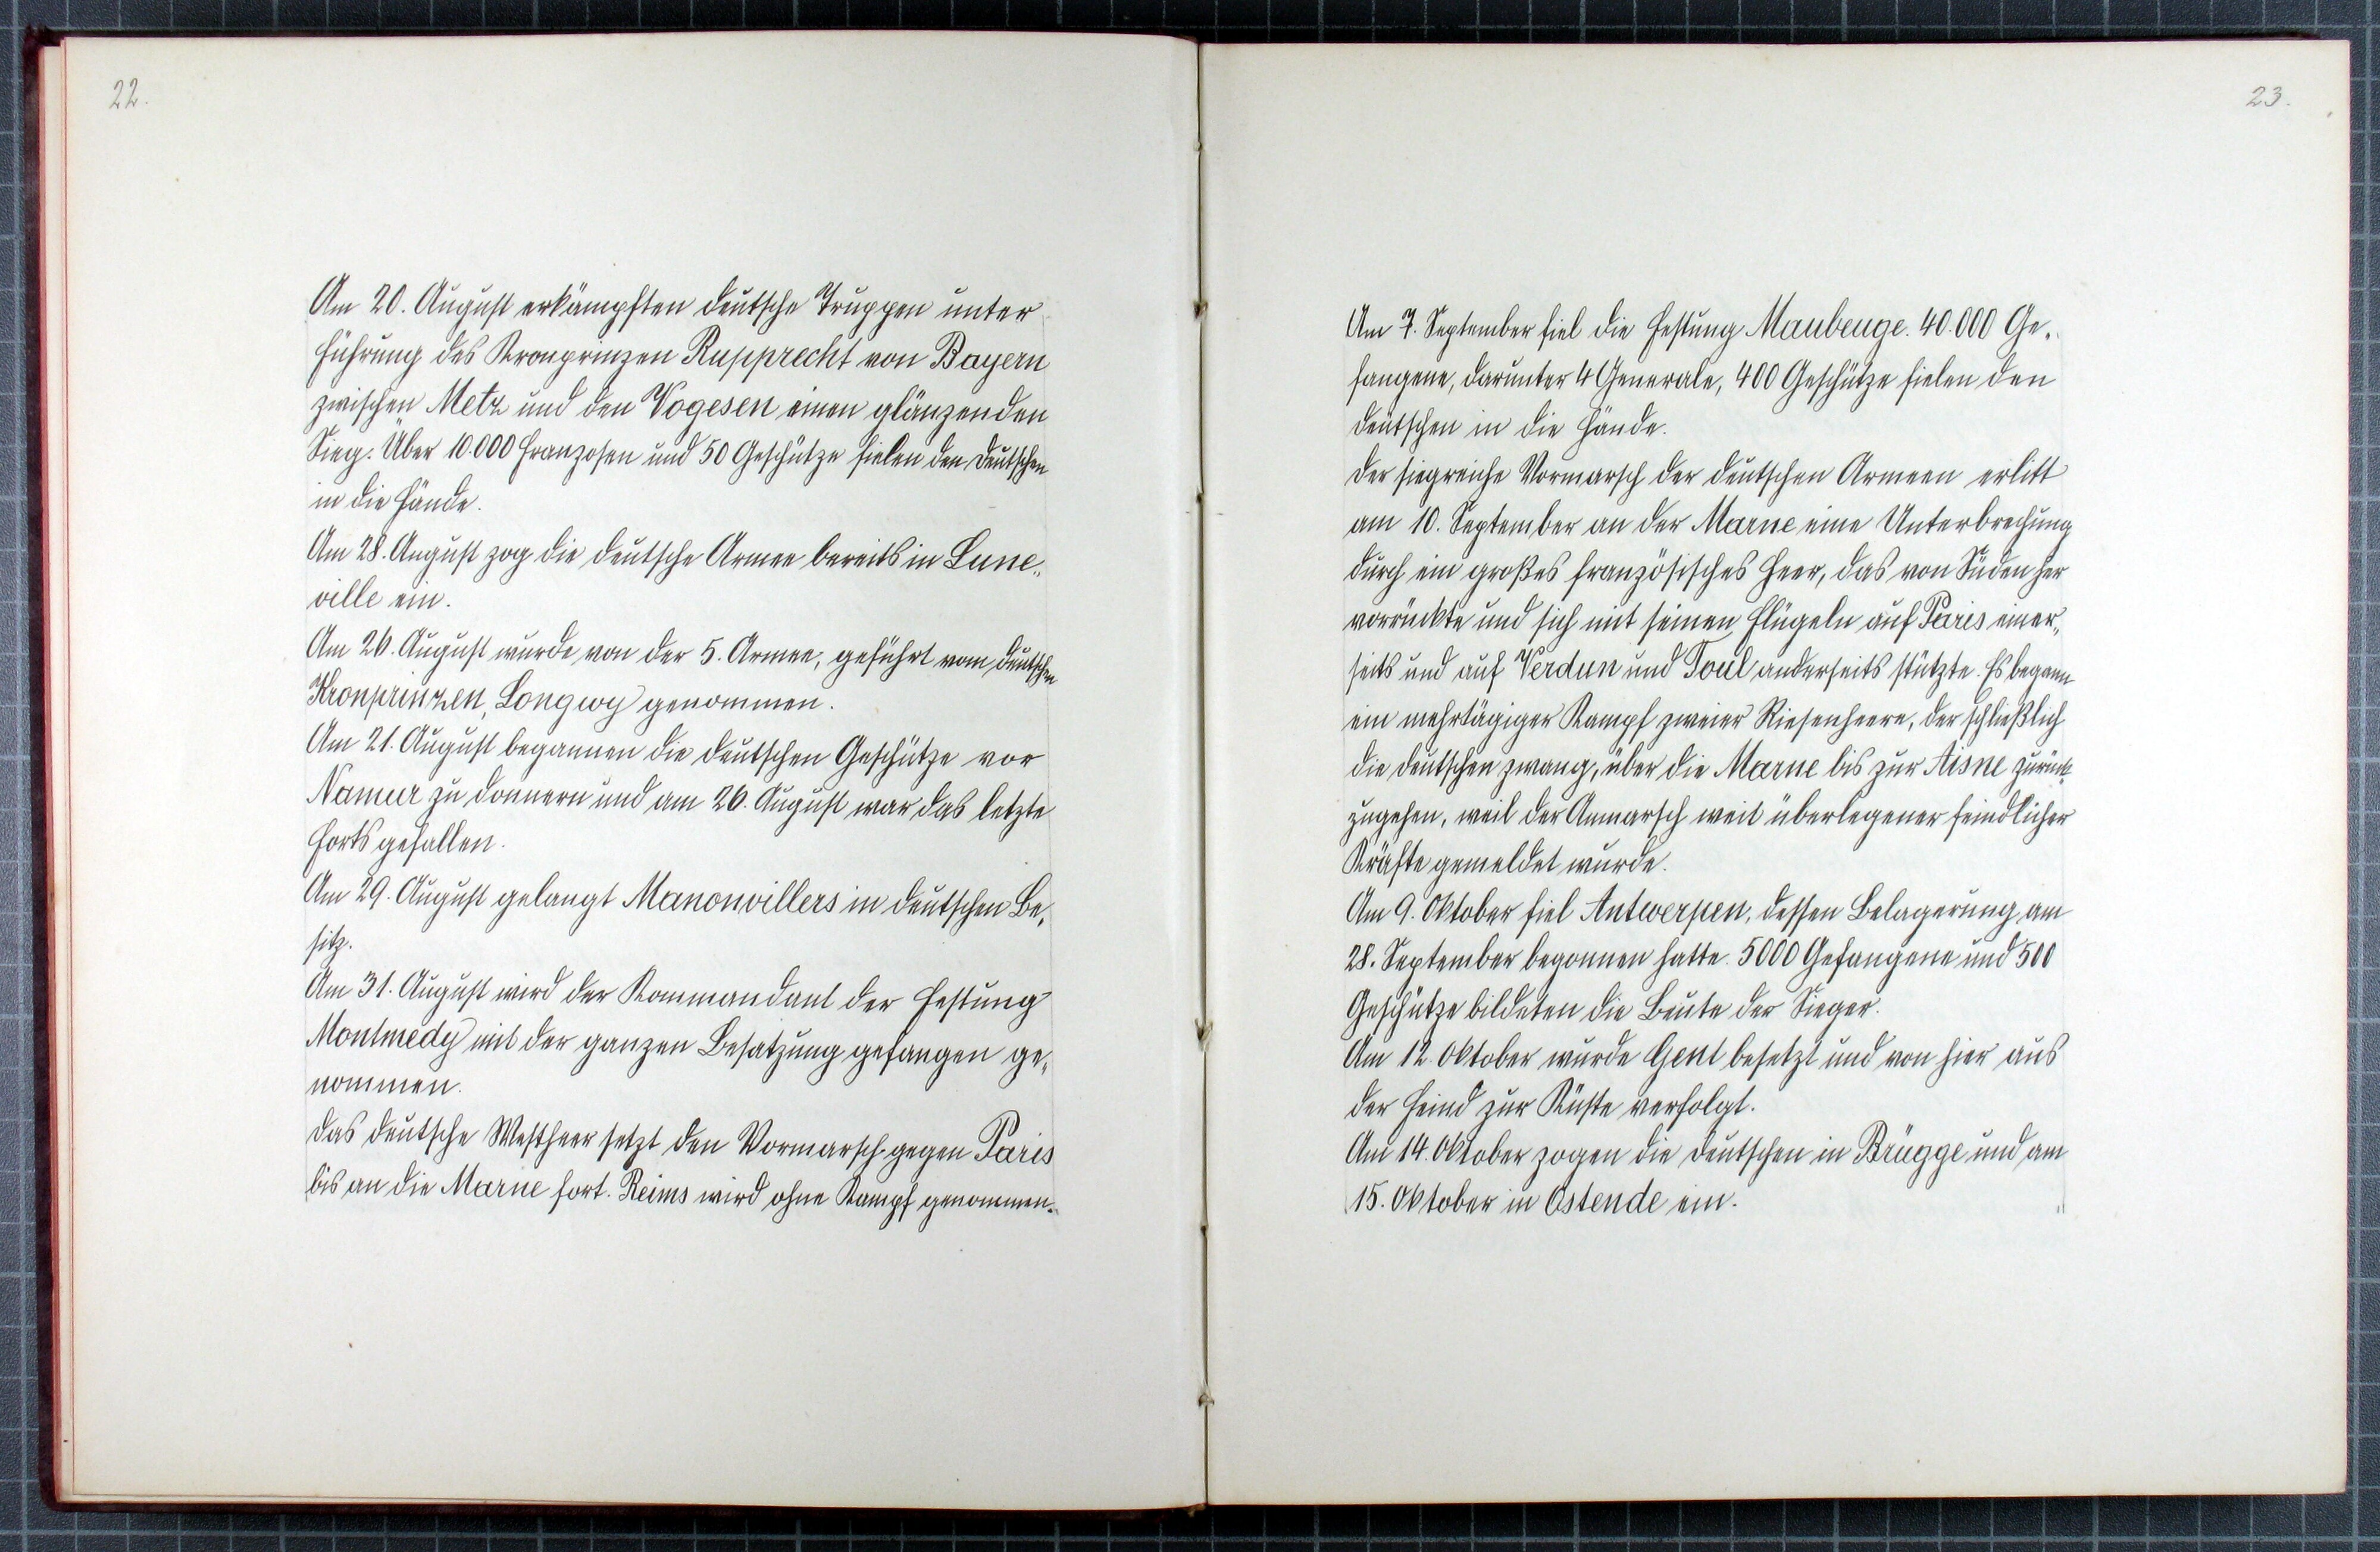 22.
Am 20. August erkämpften deutsche Truppen unter
Führung des Kronprinzen Rupprecht von Bayern
zwischen Metz und den Vogesen einen glänzenden
Sieg. Über 10.000 Franzosen und 50 Geschütze fielen den Deutschen
in die Hände.
Am 28. August zog die deutsche Armee bereits in Lune„
ville ein.
Am 26. August wurde von der 5. Armee, geführt vom deutschen
Kronprinzen, Longwy genommen.
Am 21. August begannen die deutschen Geschütze vor
Namur zu donnern und am 26. August war das letzte
Forts gefallen.
Am 29. August gelangt Manonvillers in deutschen Be„
sitz.
Am 31. August wird der Kommandant der Festung
Montmedy mit der ganzen Besatzung gefangen ge„
nommen.
Das deutsche Westheer setzt den Vormarsch gegen Paris
bis an die Marne fort. Reims wird ohne Kampf genommen.
23.
Am 7. September fiel die Festung Maubeuge. 40.000 Ge„
fangene, darunter 4 Generale, 400 Geschütze fielen den
Deutschen in die Hände.
Der siegreiche Vormarsch der deutschen Armeen erlitt
am 10. September an der Marne eine Unterbrechung
durch ein großes französisches Heer, das von Süden her
vorrückte und sich mit seinen Flügeln auf Paris einer„
seits und auf Verdun und Toul anderseits stützte. Es begann
ein mehrtägiger Kampf zweier Riesenheere, der schließlich
die Deutschen zwang, über die Marne bis zur Aisne zurück„
zugehen, weil der Anmarsch weit überlegener feindlicher
Kräfte gemeldet wurde.
Am 9. Oktober fiel Antwerpen, dessen Belagerung am
28. September begonnen hatte. 5000 Gefangene und 500
Geschütze bildeten die Beute der Sieger.
Am 12. Oktober wurde Gent besetzt und von hier aus
der Feind zur Küste verfolgt.
Am 14. Oktober zogen die Deutschen in Brügge und am
15. Oktober in Ostende ein.